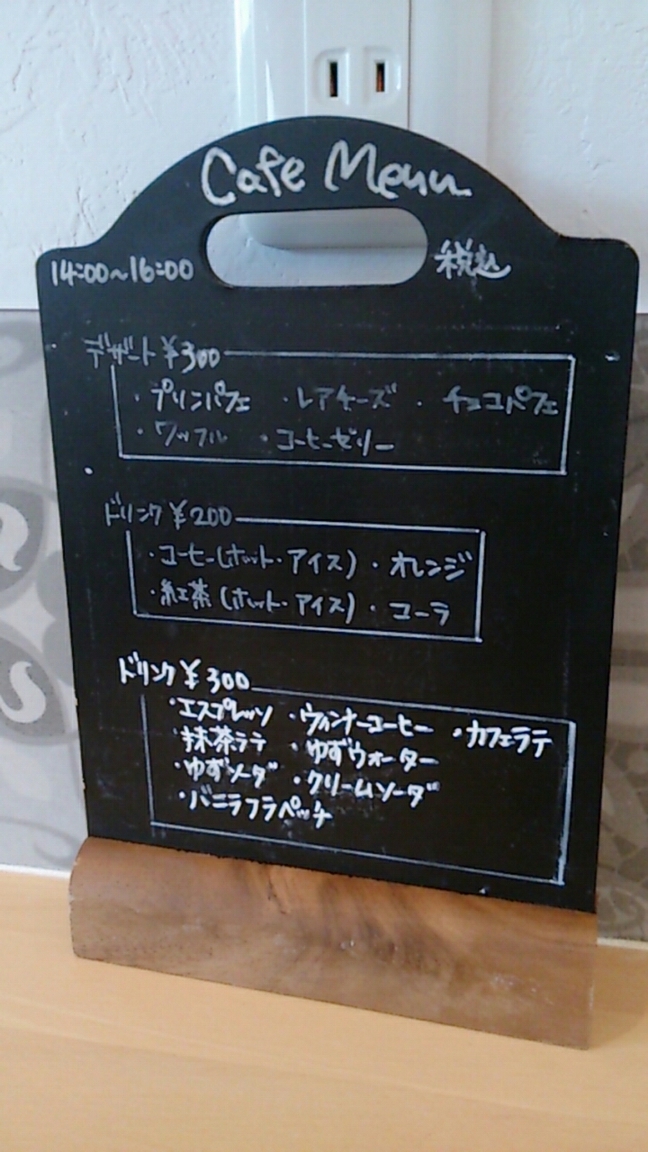 Cafe Menu
14:00~16:00 税込
デザート ¥300
・プリンパフェ ・レアチーズ ・チョコパフェ
・ワッフル ・コーヒーゼリー
ドリンク ¥200
・コーヒー(ホット・アイス) ・オレンジ
・紅茶(ホット・アイス) ・コーラ
ドリンク ¥300
・エスプレッソ ・ウィンナーコーヒー ・カフェラテ
・抹茶ラテ ・ゆずウォーター
・ゆずソーダ ・クリームソーダ
・バニラフラペッチ